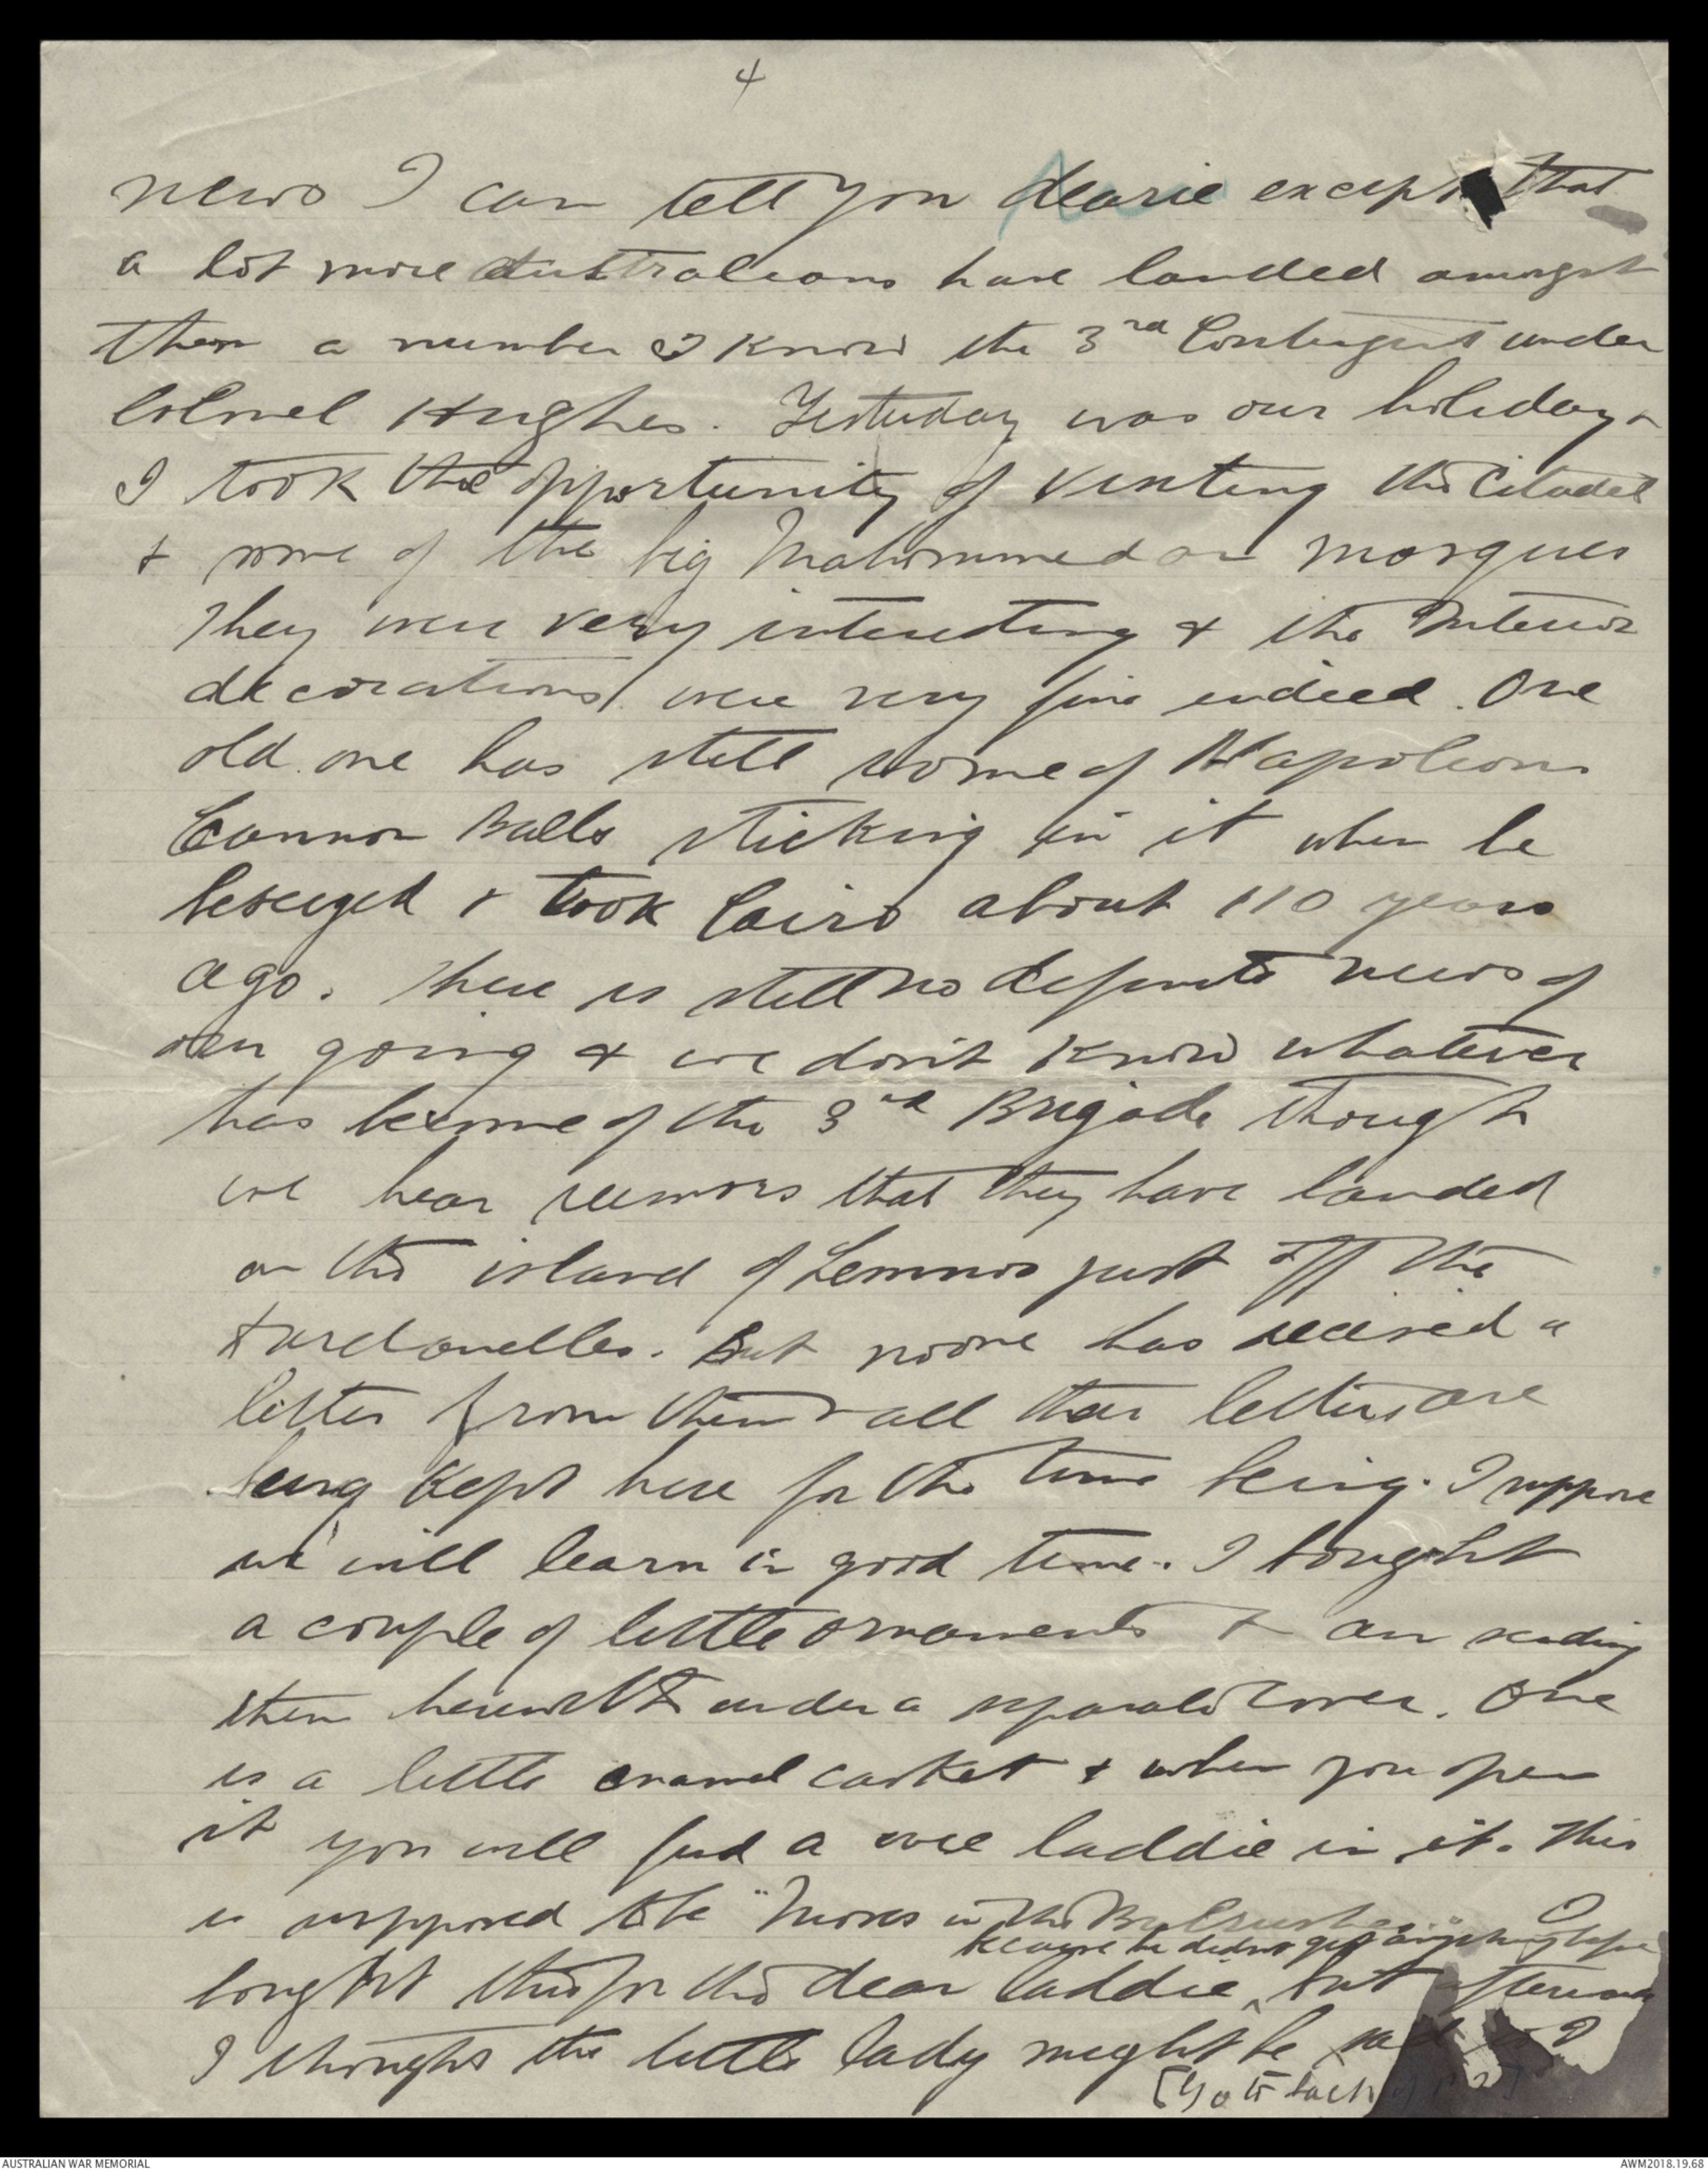 4
news I can tell you dearie except that
a lot more Australians have landed amongst
them a number I know the 3rd Contingent under
Colonel Hughes. Yesterday was our holiday &
I took the opportunity of visiting the Citadel
& some of the big Mahommedan mosques
They were very interesting & the Interior
decorations were very fine indeed. One
old one has still some of Napoleons
Cannon Balls sticking in it when he
beseiged & took Cairo about 110 years
ago. There is still no definite news of
our going & we don't know whatever
has become of the 3rd Brigade though
we hear rumors that they have landed
on the island of Lemnos just off the
Dardanelles. But noone has received a
letter from them & all their letters are
being kept here for the time being. I suppose
we will learn in good time. I bought
a couple of little ornaments & am sending
them herewith under a separate cover. One
is a little enamel casket & when you open
it you will find a wee laddie in it. This
is supposed to be "Moses in the Bulrushes" I
because he didn't get anything before
bought this for the dear laddie, but afterwards
I thought the little lady might be sad so I
[Go to back of p 2]
AUSTRALIAN WAR MEMORIAL
AWM2018.19.68